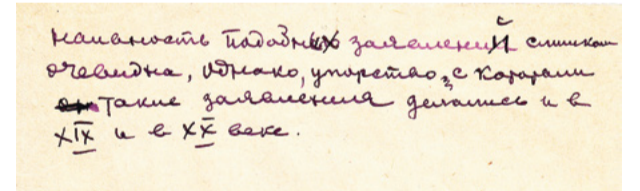 наивность подобных заявлений слишком
очевидна, однако, упорство, с которыми
такие заявления делались и в
XIX и в XX веке.